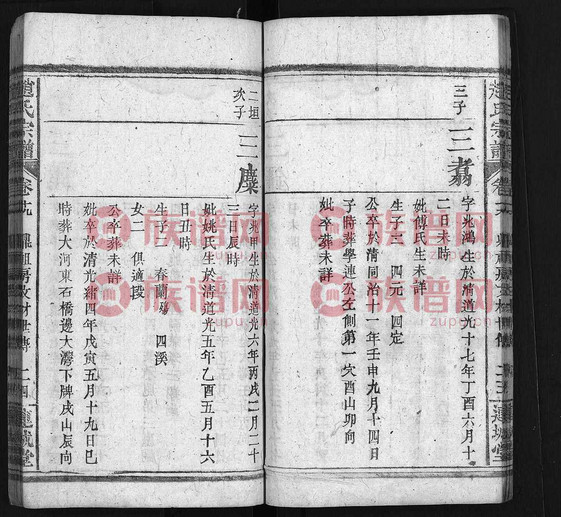 趙氏宗譜
卷十九
二三
連城堂
三子
三翥
字兆鴻生於清道光十七年丁酉六月十
二日未時
妣傅氏生未詳
生子二 四元 四定
公卒於清同治十一年壬申九月十四日
子時葬學連公左側第一穴酉山卯向
妣卒葬未詳
二垣
次子
三麋
字兆甲生於清道光六年丙戌二月二十
三日辰時
妣姚氏生於清道光五年乙酉五月十六
日丑時
生子二 春蘭殤 四溪
女二 俱適段
公卒葬未詳
妣卒於清光緒四年戊寅五月十九日巳
時葬大河東石橋邊大灣下牌戌山辰向
趙氏宗譜
卷十九
二四
連城堂
族谱网
zupu.cn
族谱网
zupu.cn
族谱网
zupu.cn
族谱网
zupu.cn